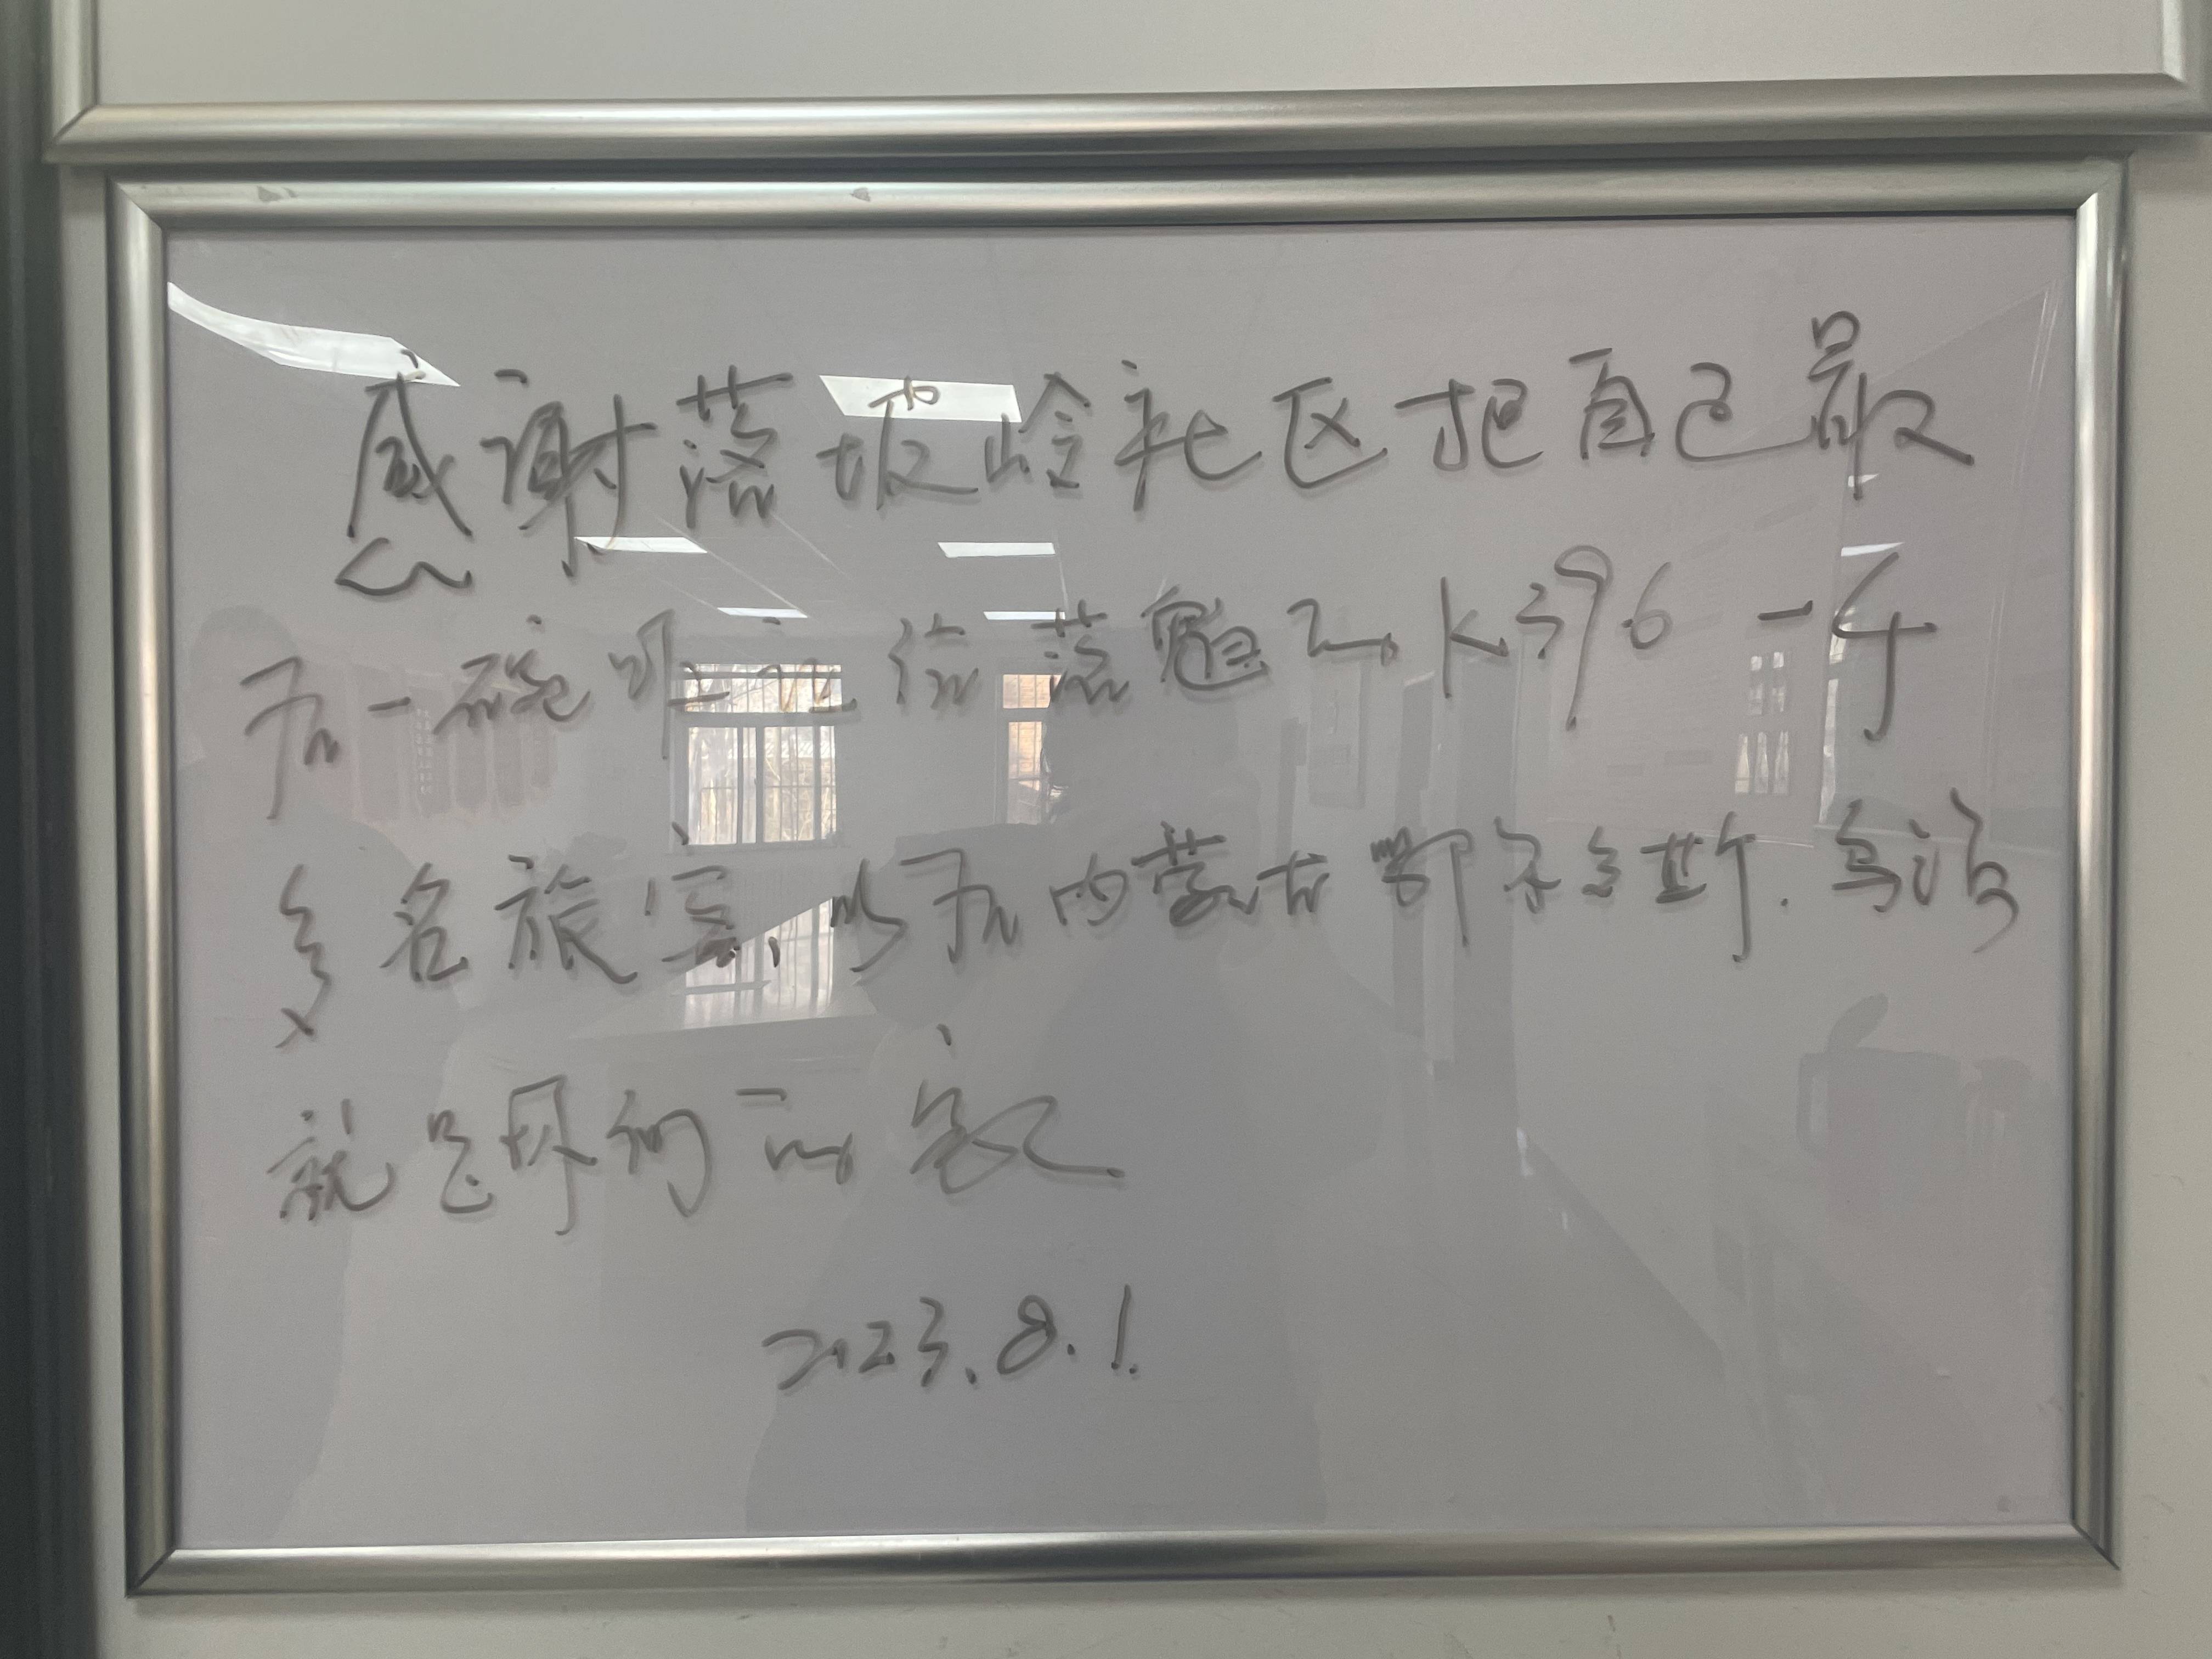 感谢落坡岭社区把自己最
后一碗 让给落难的K396一千
多名旅客,以后内蒙古鄂尔多斯.乌海
就是你们的家
2023.8.1.